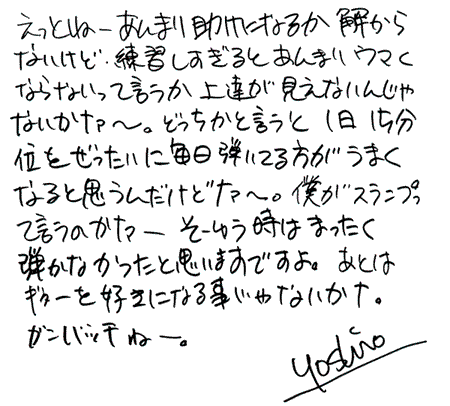 えっとねーあんまり助けになるか解から
ないけど・練習しすぎるとあんまりウマく
ならないって言うか上達が見えないんじゃ
ないかなァ〜。どっちかと言うと1日15分
位をぜったいに毎日弾いてる方がうまく
なると思うんだけどなァ〜。僕がスランプっ
て言うのかなァーそーゆう時はまったく
弾かなかったと思いますですよ。あとは
ギターを好きになる事じゃないかナ。
ガンバッテねー。
yoshiro